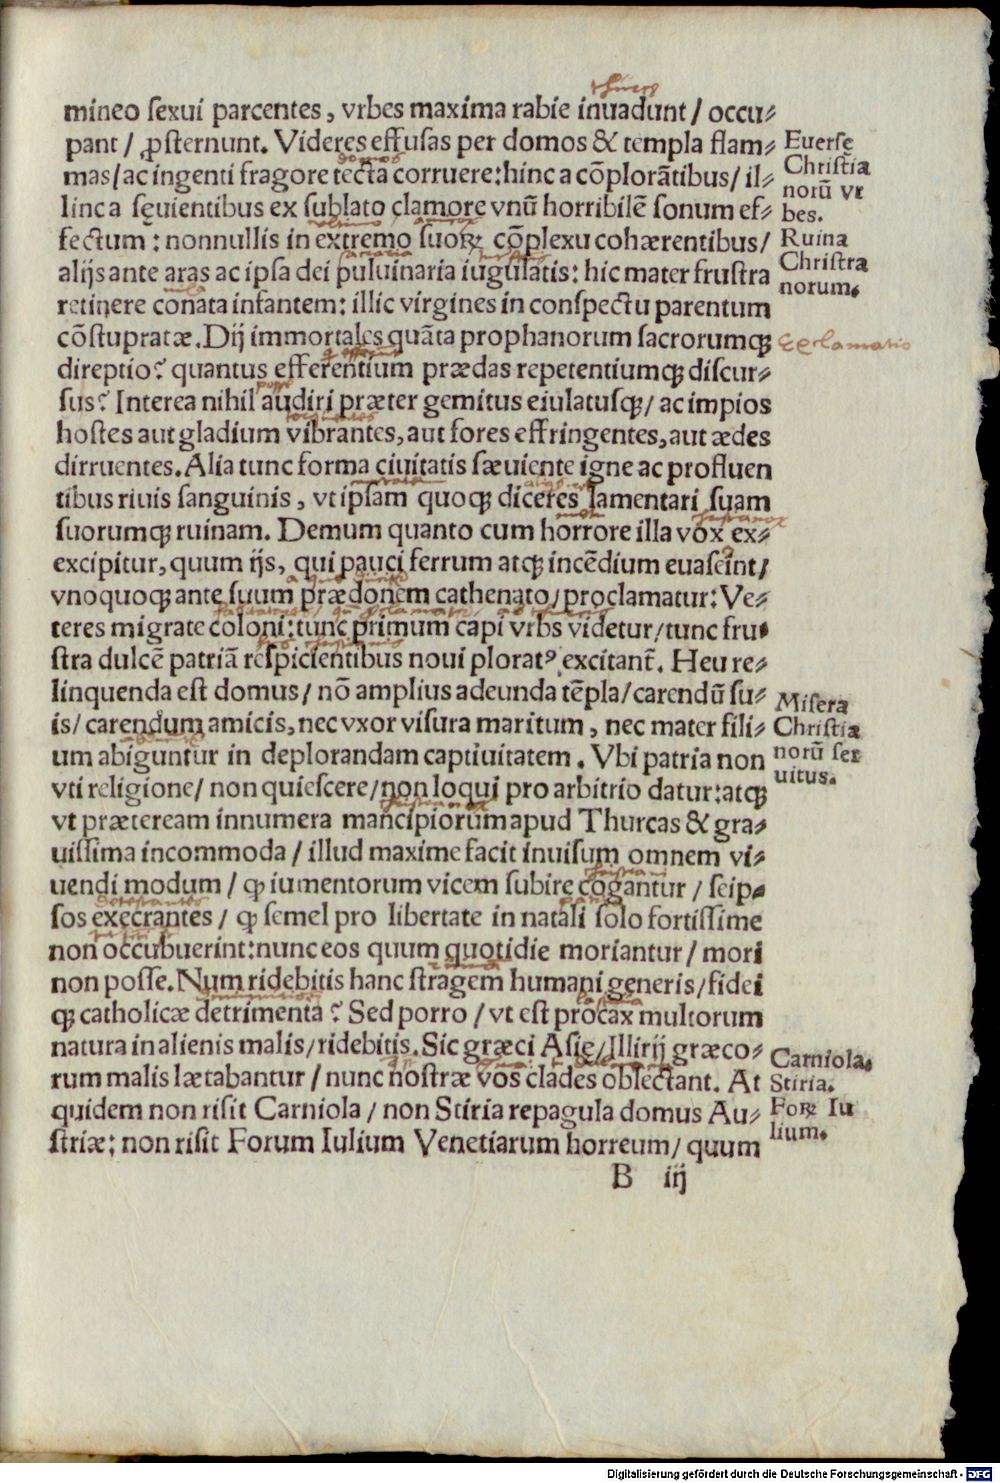 mineo sexui parcentes, vrbes maxima rabie inuadunt/ occu-
pant/ ꝓsternunt. Videres effusas per domos & templa flam-
mas/ac ingenti fragore tecta corruere:hinc a cōplorātibus/ il-
linc a sęuientibus ex sublato clamore vnū horribilē sonum ef-
fectum: nonnullis in extremo suoꝝ cōplexu cohærentibus/
alijs ante aras ac ipsa dei puluinaria iugulatis: hic mater frustra
retinere conata infantem: illic virgines in conspectu parentum
cōstupratæ. Dij immortales quāta prophanorum sacrorumqꝫ
direptio? quantus efferentium prædas repetentiumqꝫ discur-
sus? Interea nihil audiri præter gemitus eiulatusqꝫ/ ac impios
hostes aut gladium vibrantes, aut fores effringentes, aut ædes
dirruentes. Alia tunc forma ciuitatis sæuiente igne ac profluen
tibus riuis sanguinis, vt ipsam quoqꝫ diceres lamentari suam
suorumqꝫ ruinam. Demum quanto cum horrore illa vox ex-
excipitur, quum ijs, qui pauci ferrum atqꝫ incēdium euaseīnt/
vnoquoqꝫ ante suum prædonem cathenato/ proclamatur: Ve-
teres migrate coloni: tunc primum capi vrbs videtur/tunc fru-
stra dulcē patriā respicientibus noui ploratꝰ excitant̃. Heu re-
linquenda est domus/ nō amplius adeunda tēpla/ carendū su-
is/ carendum amicis, nec vxor visura maritum, nec mater fili-
um abiguntur in deplorandam captiuitatem. Vbi patria non
vti religione/ non quiescere/ non loqui pro arbitrio datur: atqꝫ
vt præteream innumera mancipiorum apud Thurcas & gra-
uissima incommoda/ illud maxime facit inuisum omnem vi-
uendi modum/ ꝙ iumentorum vicem subire cogantur/ seip-
sos execrantes/ ꝙ semel pro libertate in natali solo fortissime
non occubuerint: nunc eos quum quotidie moriantur/ mori
non posse. Num ridebitis hanc stragem humani generis/ fidei
qꝫ catholicæ detrimenta? Sed porro/ vt est procax multorum
natura in alienis malis/ ridebitis. Sic græci Asię/ Illirij græco-
rum malis lætabantur/ nunc nostræ vos clades oblectant. At
quidem non risit Carniola/ non Stiria repagula domus Au-
striæ: non risit Forum Iulium Venetiarum horreum/ quum
B iij
Euersę
Christia
norū vr
bes.
Ruina
Christra
norum.
Exclamatio
Misera
Christia
norū ser
uitus.
Carniola.
Stiria.
Foꝝ Iu
lium.
Digitalisierung gefördert durch die Deutsche Forschungsgemeinschaft - DFG